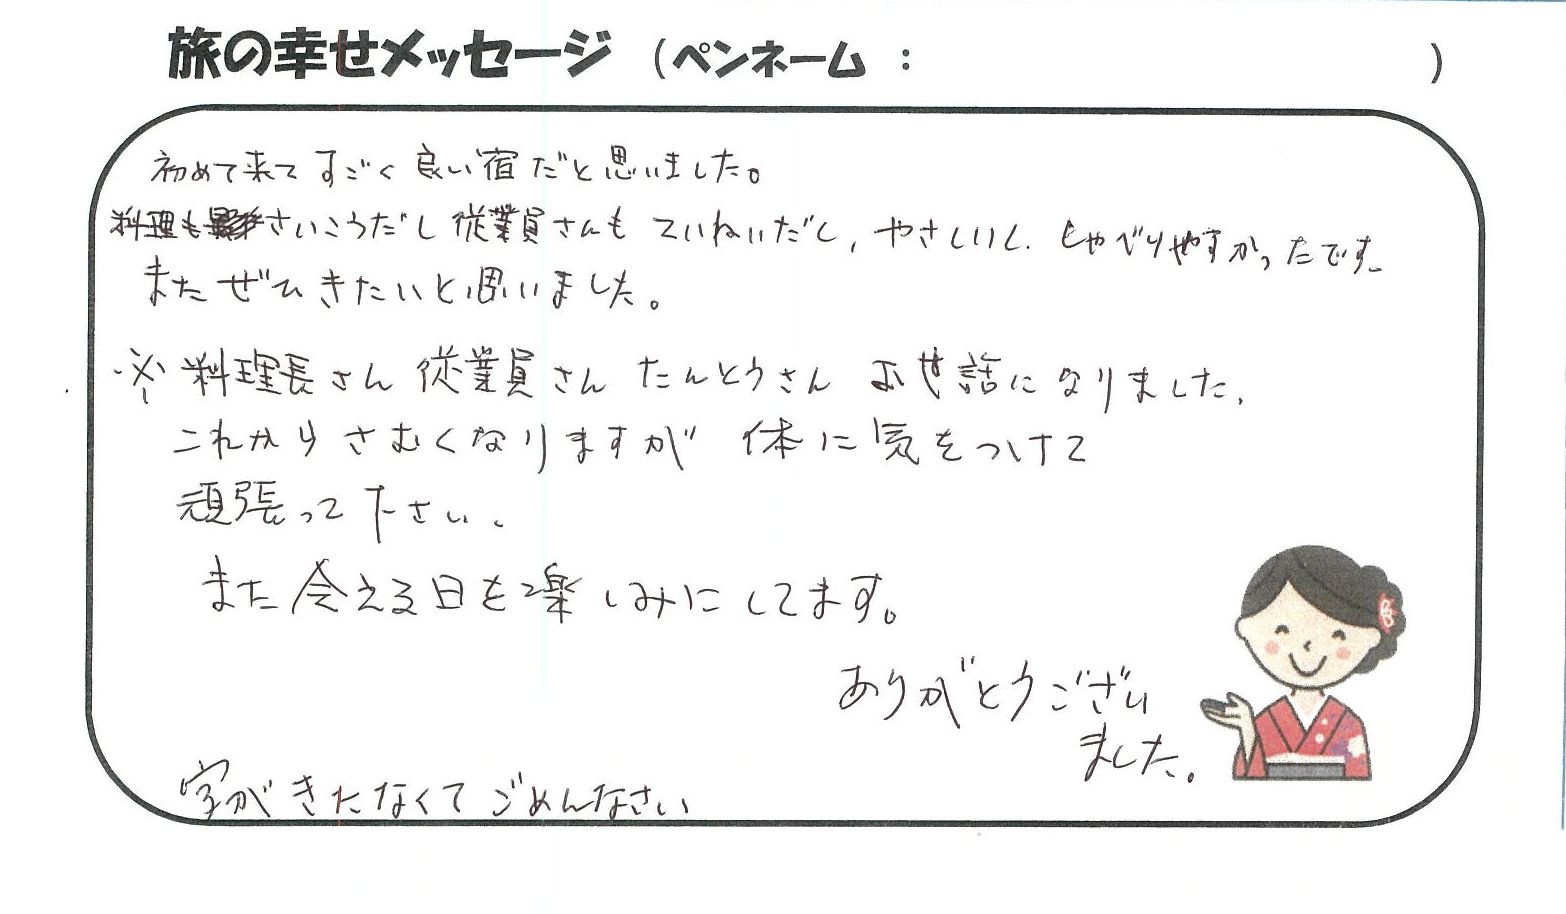 旅の幸せメッセージ （ペンネーム ： ）
初めて来てすごく良い宿だと思いました。
料理もさいこうだし従業員さんもていねいだし、やさしいし、しゃべりやすかったです。
またぜひきたいと思いました。
※ 料理長さん 従業員さん たんとうさん お世話になりました。
これからさむくなりますが 体に気をつけて
頑張って下さい。
また会える日を楽しみにしてます。
ありがとうござい
ました。
字がきたなくてごめんなさい